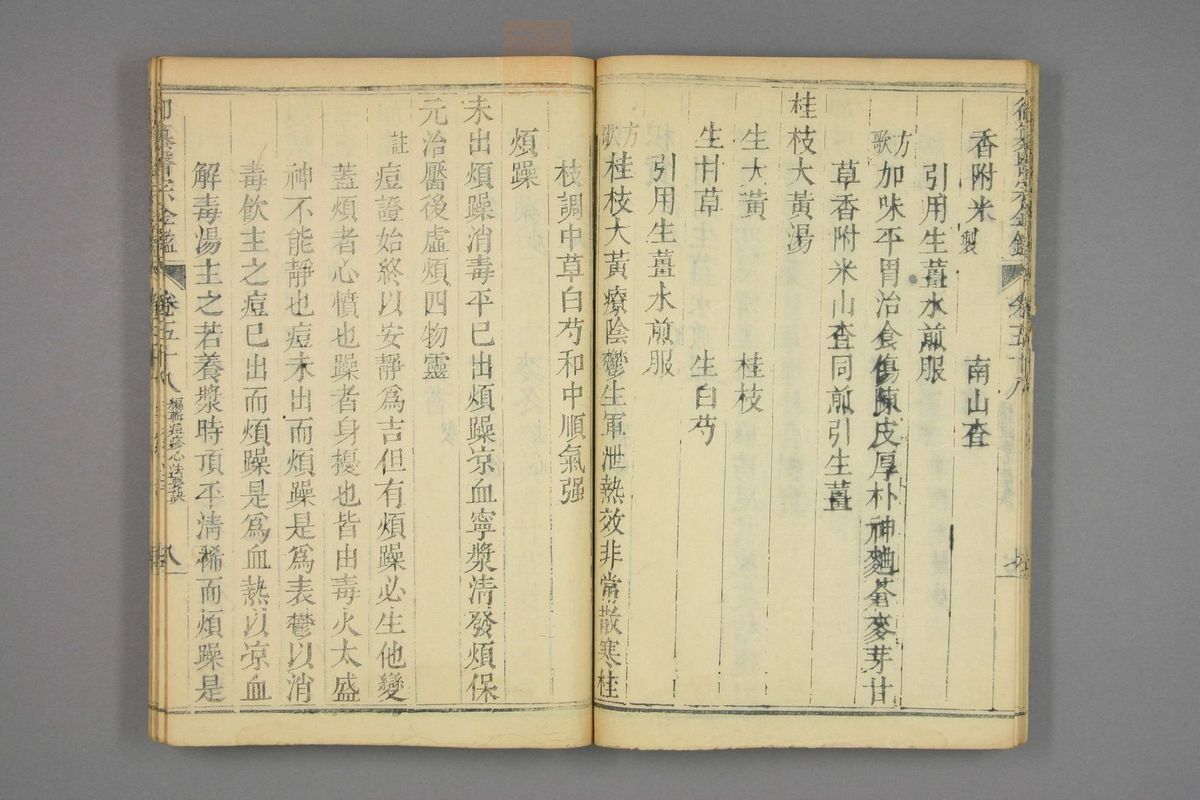 香附米製　南山查
引用生薑水煎服
方歌 加味平胃治食傷陳皮厚朴神麯蒼麥芽甘
草香附米山查同煎引生薑
桂枝大黃湯
生大黃　桂枝
生甘草　生白芍
引用生薑水煎服
方歌 桂枝大黃療陰鬱生軍泄熱效非常散寒桂
枝調中草白芍和中順氣强
煩躁
未出煩躁消毒平已出煩躁凉血寧漿清發煩保
元治靨後虛煩四物靈
註 痘證始終以安靜爲吉但有煩躁必生他變
蓋煩者心憤也躁者身擾也皆由毒火太盛
神不能靜也痘未出而煩躁是爲表鬱以消
毒飮主之痘已出而煩躁是爲血熱以凉血
解毒湯主之若養漿時頂平清稀而煩躁是
御纂醫宗金鑑　卷五十八　編輯痘疹心法要訣　八